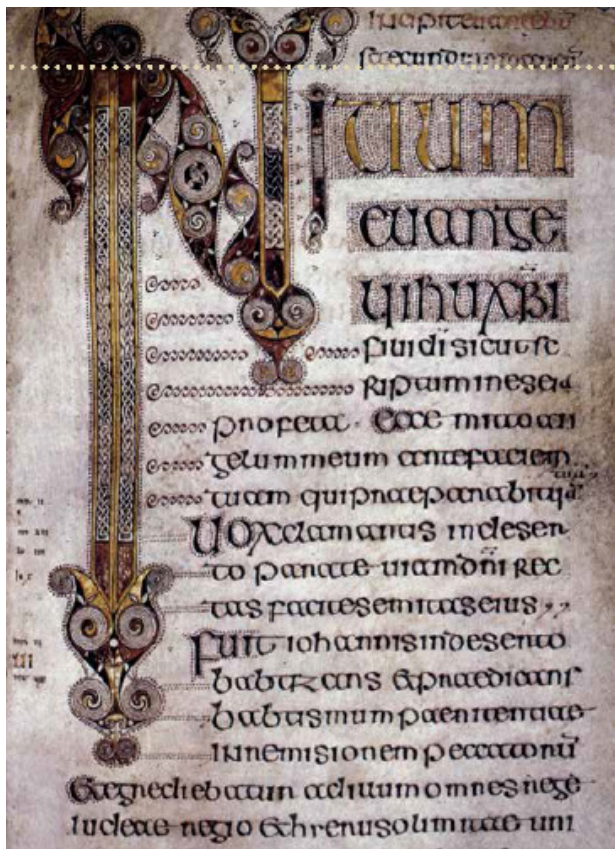 secundum
INITIUM
euange
lii ihu xpi
fili di sicut sc
riptum in eseia
profeta · Ecce mitto an
gelum meum ante faciem
tuam qui praeparabit
Uox clamantis in deser
to parate uiam dñi rec
tas facite semitas eius ,,
Fuit iohannis in deserto
babtizans & praedicans
babtismum paenitentiae
in remisionem peccatorū
& egrediebatur ad illum omnes rege
iudeae regio & hierusolimitae uni